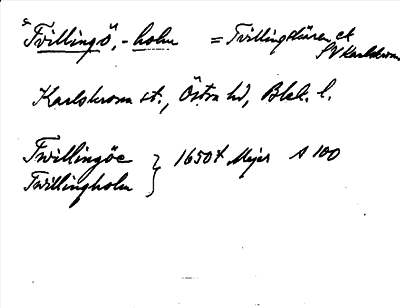 Tvillingö, -holm = Tvillingskären
SV Karlskrona
Karlskrona st., Östra hd, Blek. l.
Twillingöe } 1650t Mejer A 100
Twillingholm